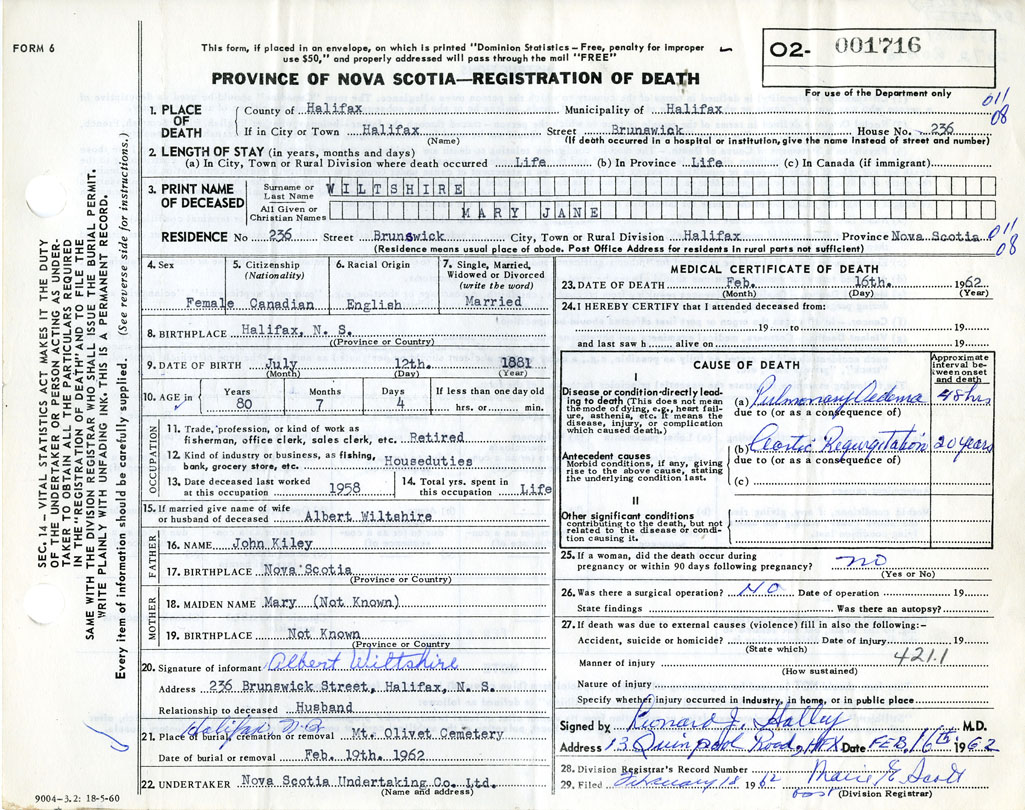 FORM 6
This form, if placed in an envelope, on which is printed "Dominion Statistics – Free, penalty for improper
use $50," and properly addressed will pass through the mail "FREE"
PROVINCE OF NOVA SCOTIA—REGISTRATION OF DEATH
O2- 001716
For use of the Department only
011
08
SEC. 14 – VITAL STATISTICS ACT MAKES IT THE DUTY
OF THE UNDERTAKER OR PERSON ACTING AS UNDER-
TAKER TO OBTAIN ALL THE PARTICULARS REQUIRED
IN THE "REGISTRATION OF DEATH" AND TO FILE THE
SAME WITH THE DIVISION REGISTRAR WHO SHALL ISSUE THE BURIAL PERMIT.
WRITE PLAINLY WITH UNFADING INK. THIS IS A PERMANENT RECORD.
Every item of information should be carefully supplied. (See reverse side for instructions.)
1. PLACE OF DEATH
County of Halifax Municipality of Halifax
If in City or Town Halifax Street Brunswick House No. 236
(Name) (If death occurred in a hospital or institution, give the name instead of street and number)
2. LENGTH OF STAY (in years, months and days)
(a) In City, Town or Rural Division where death occurred Life (b) In Province Life (c) In Canada (if immigrant)
3. PRINT NAME OF DECEASED
Surname or Last Name WILTSHIRE
All Given or Christian Names MARY JANE
RESIDENCE No 236 Street Brunswick City, Town or Rural Division Halifax Province Nova Scotia
011
08
(Residence means usual place of abode. Post Office Address for residents in rural parts not sufficient)
4. Sex
Female
5. Citizenship (Nationality)
Canadian
6. Racial Origin
English
7. Single, Married, Widowed or Divorced (write the word)
Married
8. BIRTHPLACE Halifax, N. S.
(Province or Country)
9. DATE OF BIRTH July 12th. 1881
(Month) (Day) (Year)
10. AGE in Years 80 Months 7 Days 4 If less than one day old hrs. or min.
OCCUPATION
11. Trade, profession, or kind of work as
fisherman, office clerk, sales clerk, etc. Retired
12. Kind of industry or business, as fishing,
bank, grocery store, etc. Houseduties
13. Date deceased last worked
at this occupation 1958
14. Total yrs. spent in
this occupation Life
15. If married give name of wife
or husband of deceased Albert Wiltshire
FATHER
16. NAME John Kiley
17. BIRTHPLACE Nova Scotia
(Province or Country)
MOTHER
18. MAIDEN NAME Mary (Not Known)
19. BIRTHPLACE Not Known
(Province or Country)
20. Signature of informant Albert Wiltshire
Address 236 Brunswick Street, Halifax, N. S.
Relationship to deceased Husband
Halifax N.S.
21. Place of burial, cremation or removal Mt. Olivet Cemetery
Date of burial or removal Feb. 19th. 1962
22. UNDERTAKER Nova Scotia Undertaking Co. Ltd.
(Name and address)
9004-3.2: 18-5-60
MEDICAL CERTIFICATE OF DEATH
23. DATE OF DEATH Feb. 16th. 1962
(Month) (Day) (Year)
24. I HEREBY CERTIFY that I attended deceased from:
19 to 19
and last saw h alive on 19
CAUSE OF DEATH
Approximate interval between onset and death
I
Disease or condition directly leading to death (This does not mean the mode of dying, e.g., heart failure, asthenia, etc. It means the disease, injury, or complication which caused death.)
(a) Pulmonary Oedema 48 hrs
due to (or as a consequence of)
Antecedent causes
Morbid conditions, if any, giving rise to the above cause, stating the underlying condition last.
(b) Aortic Regurgitation 20 years
due to (or as a consequence of)
(c)
II
Other significant conditions
contributing to the death, but not related to the disease or condition causing it.
25. If a woman, did the death occur during
pregnancy or within 90 days following pregnancy? no
(Yes or No)
26. Was there a surgical operation? NO Date of operation 19
State findings Was there an autopsy?
27. If death was due to external causes (violence) fill in also the following:–
Accident, suicide or homicide? Date of injury 19
(State which)
421.1
Manner of injury
(How sustained)
Nature of injury
Specify whether injury occurred in industry, in home, or in public place
Signed by Leonard J. Halley M.D.
Address 13 Quinpool Road, HFX Date FEB, 16th 1962
28. Division Registrar's Record Number
29. Filed February 18 1962 Marie E. Scott
(Division Registrar)